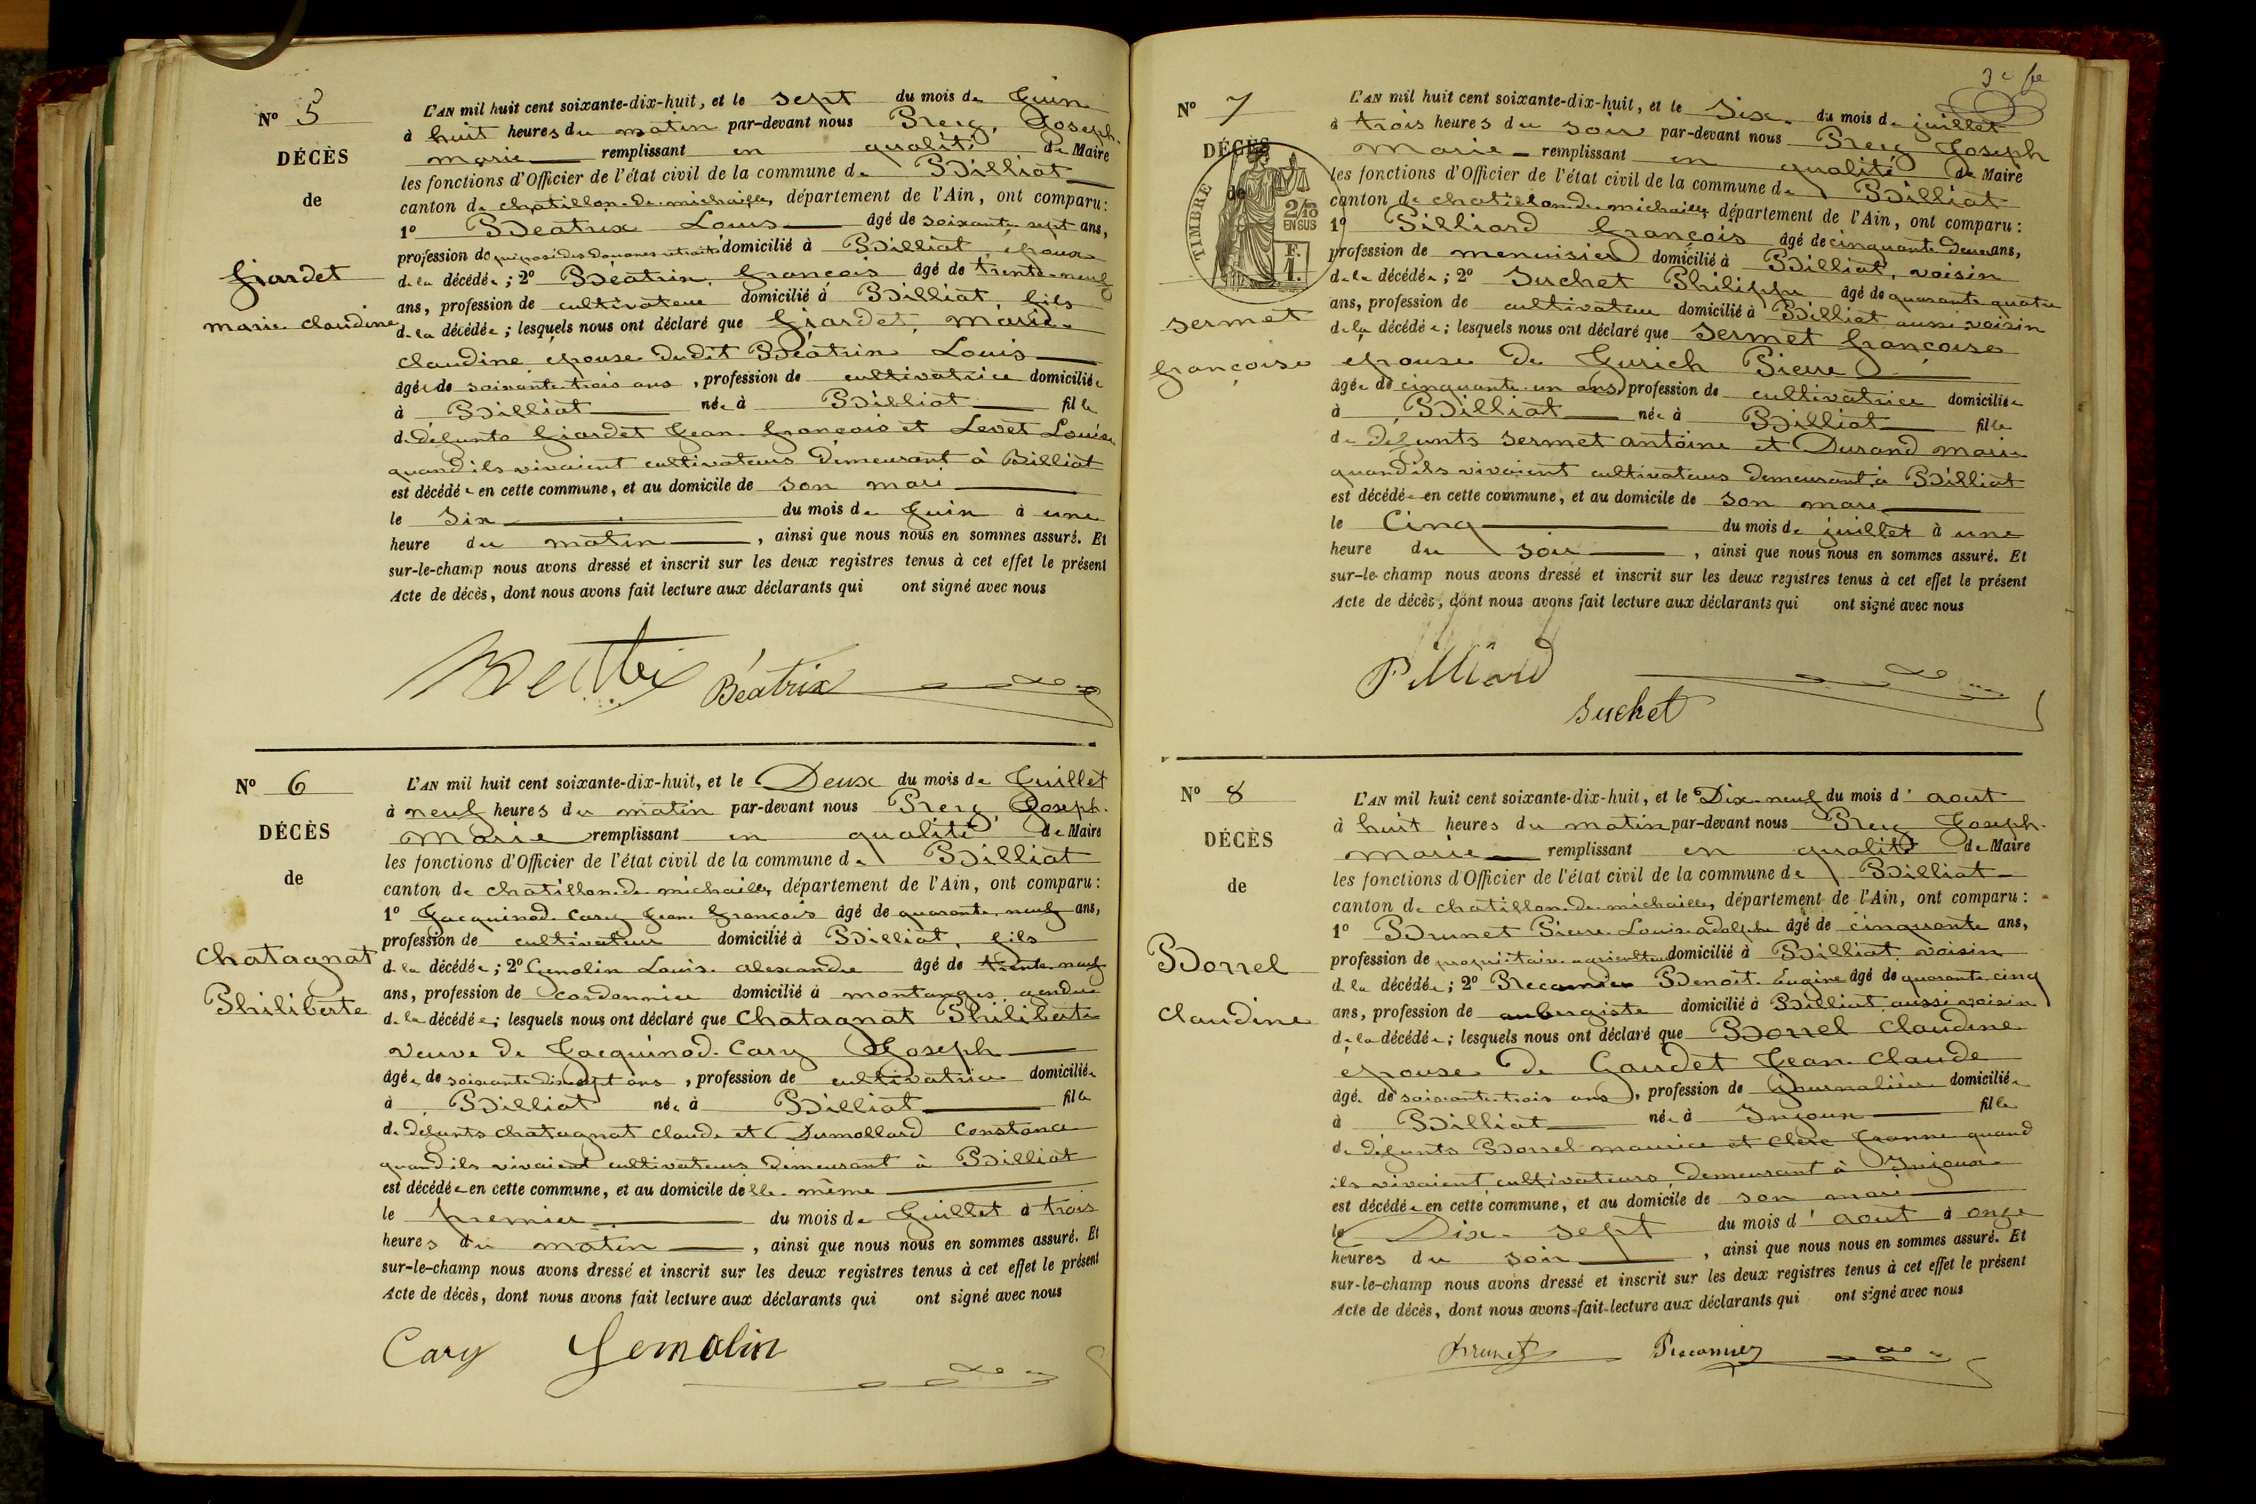 Nº 5
DÉCÈS
de
Giardet
marie claudine
L'AN mil huit cent soixante-dix-huit, et le sept du mois de Juin
à huit heures du matin par-devant nous Prery, Joseph
marie remplissant en qualité de Maire
les fonctions d'Officier de l'état civil de la commune de Billiat
canton de chatillon de michaille, département de l'Ain, ont comparu:
1º Béatrix Louis âgé de soixante sept ans,
profession de préposé des Douanes retraité domicilié à Billiat, époux
de la décédée; 2º Béatrix, françois âgé de trente-neuf
ans, profession de cultivateur domicilié à Billiat, fils
de la décédée; lesquels nous ont déclaré que Giardet, marie
claudine, épouse dudit Béatrix Louis
âgée de soixante-trois ans, profession de cultivatrice domiciliée
à Billiat née à Billiat fille
de défunts Giardet Jean françois et Levet Louise
quand ils vivaient cultivateurs demeurant à Billiat
est décédée en cette commune, et au domicile de son mari
le six du mois de Juin à une
heure du matin, ainsi que nous nous en sommes assuré. Et
sur-le-champ nous avons dressé et inscrit sur les deux registres tenus à cet effet le présent
Acte de décès, dont nous avons fait lecture aux déclarants qui ont signé avec nous
Béatrix
Nº 6
DÉCÈS
de
Chatagnat
Philiberte
L'AN mil huit cent soixante-dix-huit, et le Deux du mois de Juillet
à neuf heures du matin par-devant nous Prery, Joseph
Marie remplissant en qualité de Maire
les fonctions d'Officier de l'état civil de la commune de Billiat
canton de chatillon de michaille, département de l'Ain, ont comparu:
1º Jacquinod-Cary Jean françois âgé de quarante neuf ans,
profession de cultivateur domicilié à Billiat, fils
de la décédée; 2º Gemolin Louis alexandre âgé de trente neuf
ans, profession de cordonnier domicilié à montanges gendre
de la décédée; lesquels nous ont déclaré que Chatagnat Philiberte
veuve de Jacquinod-Cary Joseph
âgée de soixante dix sept ans, profession de cultivatrice domiciliée
à Billiat née à Billiat fille
de défunts chatagnat claude et Dumollard constance
quand ils vivaient cultivateurs demeurant à Billiat
est décédée en cette commune, et au domicile de elle même
le premier du mois de Juillet à trois
heures du matin, ainsi que nous nous en sommes assuré. Et
sur-le-champ nous avons dressé et inscrit sur les deux registres tenus à cet effet le présent
Acte de décès, dont nous avons fait lecture aux déclarants qui ont signé avec nous
Cary Gemolin
Nº 7
DÉCÈS
de
TIMBRE
2/10 EN SUS
F. 1.
sermet
françoise
L'AN mil huit cent soixante-dix-huit, et le six du mois de juillet
à trois heures du soir par-devant nous Prery Joseph
marie remplissant en qualité de Maire
les fonctions d'Officier de l'état civil de la commune de Billiat
canton de chatillon de michaille, département de l'Ain, ont comparu:
1º Pilliard françois âgé de cinquante deux ans,
profession de menuisier domicilié à Billiat, voisin
de la décédée; 2º Suchet Philippe âgé de quarante quatre
ans, profession de cultivateur domicilié à Billiat aussi voisin
de la décédée; lesquels nous ont déclaré que sermet françoise
épouse de Gurich Pierre
âgée de cinquante un ans, profession de cultivatrice domiciliée
à Billiat née à Billiat fille
de défunts sermet antoine et Durand marie
quand ils vivaient cultivateurs demeurant à Billiat
est décédée en cette commune, et au domicile de son mari
le cinq du mois de juillet à une
heure du soir, ainsi que nous nous en sommes assuré. Et
sur-le-champ nous avons dressé et inscrit sur les deux registres tenus à cet effet le présent
Acte de décès, dont nous avons fait lecture aux déclarants qui ont signé avec nous
Pilliard
Suchet
Nº 8
DÉCÈS
de
Borrel
claudine
L'AN mil huit cent soixante-dix-huit, et le Dix-neuf du mois d'aout
à huit heures du matin par-devant nous Prery Joseph
marie remplissant en qualité de Maire
les fonctions d'Officier de l'état civil de la commune de Billiat
canton de chatillon de michaille, département de l'Ain, ont comparu:
1º Brunet Pierre Louis adolphe âgé de cinquante ans,
profession de propriétaire agriculteur domicilié à Billiat voisin
de la décédée; 2º Recamier Benoit Eugène âgé de quarante cinq
ans, profession de aubergiste domicilié à Billiat aussi voisin
de la décédée; lesquels nous ont déclaré que Borrel claudine
épouse de Gaudet Jean claude
âgée de soixante trois ans, profession de journalière domiciliée
à Billiat née à Injoux fille
de défunts Borrel maurice et clerc Jeanne quand
ils vivaient cultivateurs demeurant à Injoux
est décédée en cette commune, et au domicile de son mari
le Dix-sept du mois d'aout à onze
heures du soir, ainsi que nous nous en sommes assuré. Et
sur-le-champ nous avons dressé et inscrit sur les deux registres tenus à cet effet le présent
Acte de décès, dont nous avons fait lecture aux déclarants qui ont signé avec nous
Brunet Recamier